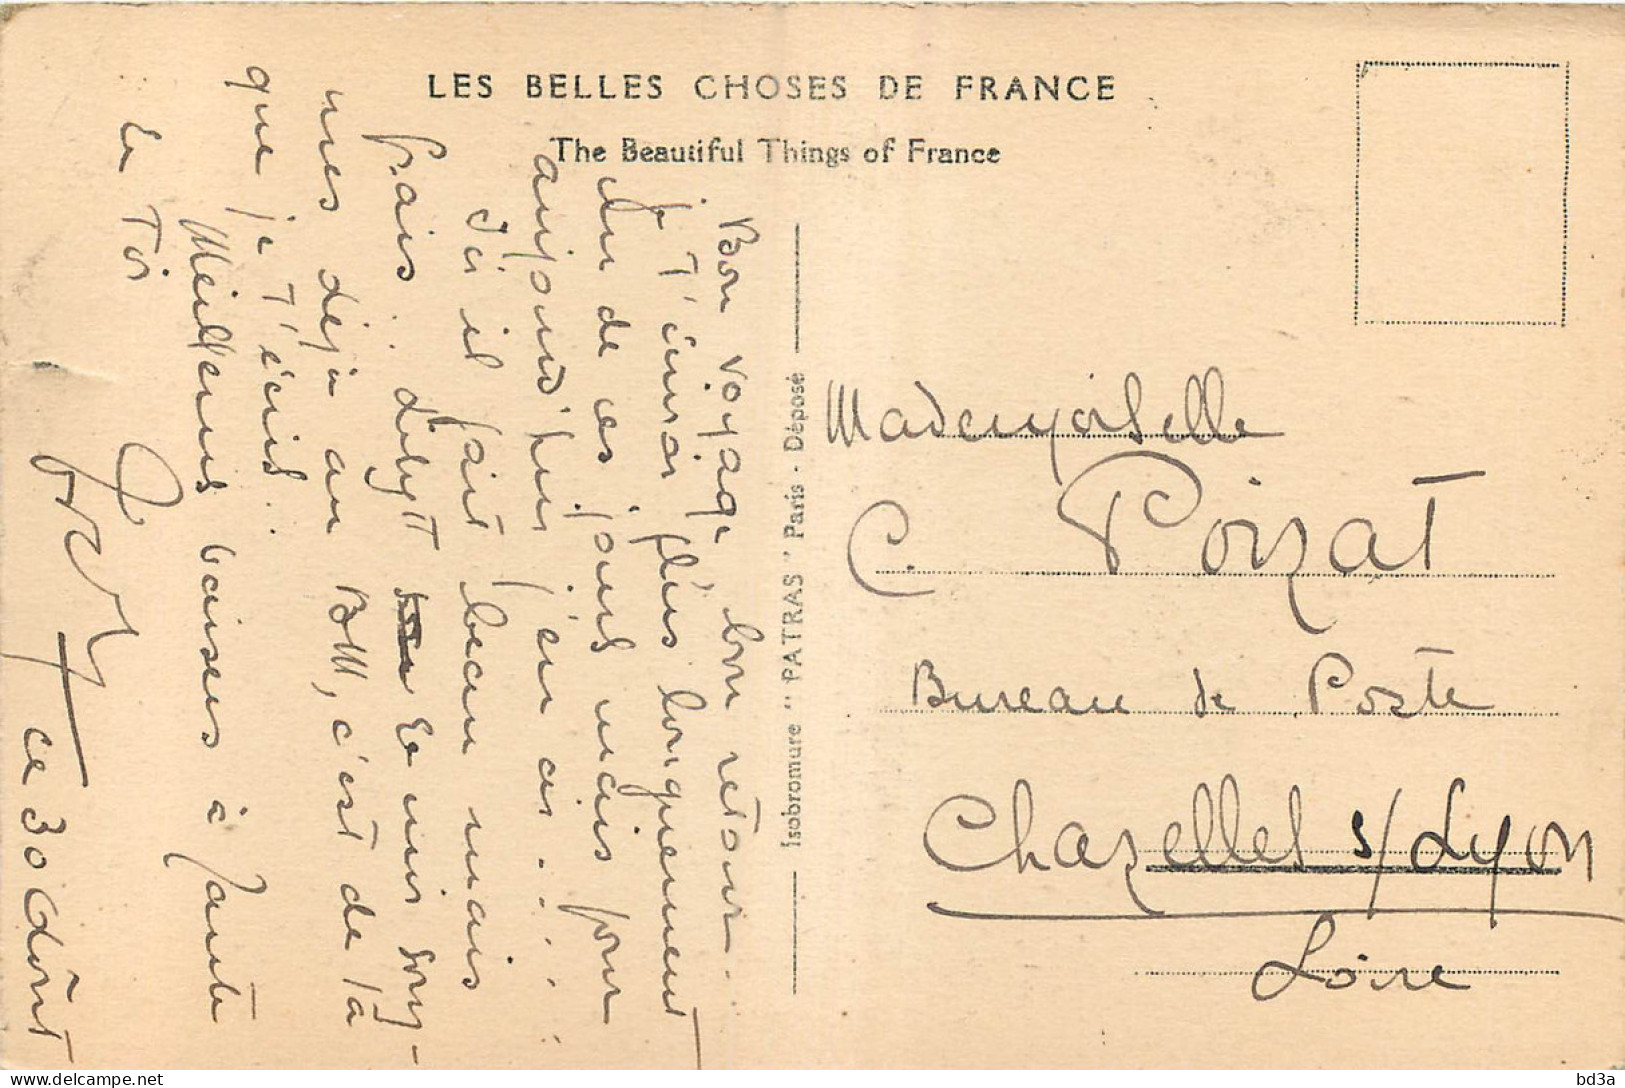 LES BELLES CHOSES DE FRANCE
The Beautiful Things of France
Bon voyage, bon retour.
je t'écrirai plus longuement
un de ces jours mais pour
aujourd'hui j'en ai ....
Ici il fait beau mais
frais.. et nous som-
mes déjà au c'est de là
que je t'écris..
Meilleurs baisers à Tante
et Toi
ce 30 Août
Isobromure "PATRAS" Paris - Déposé
Mademoiselle
C. Poizat
Bureau de Poste
Chazelles s/ Lyon
Loire
bd3a